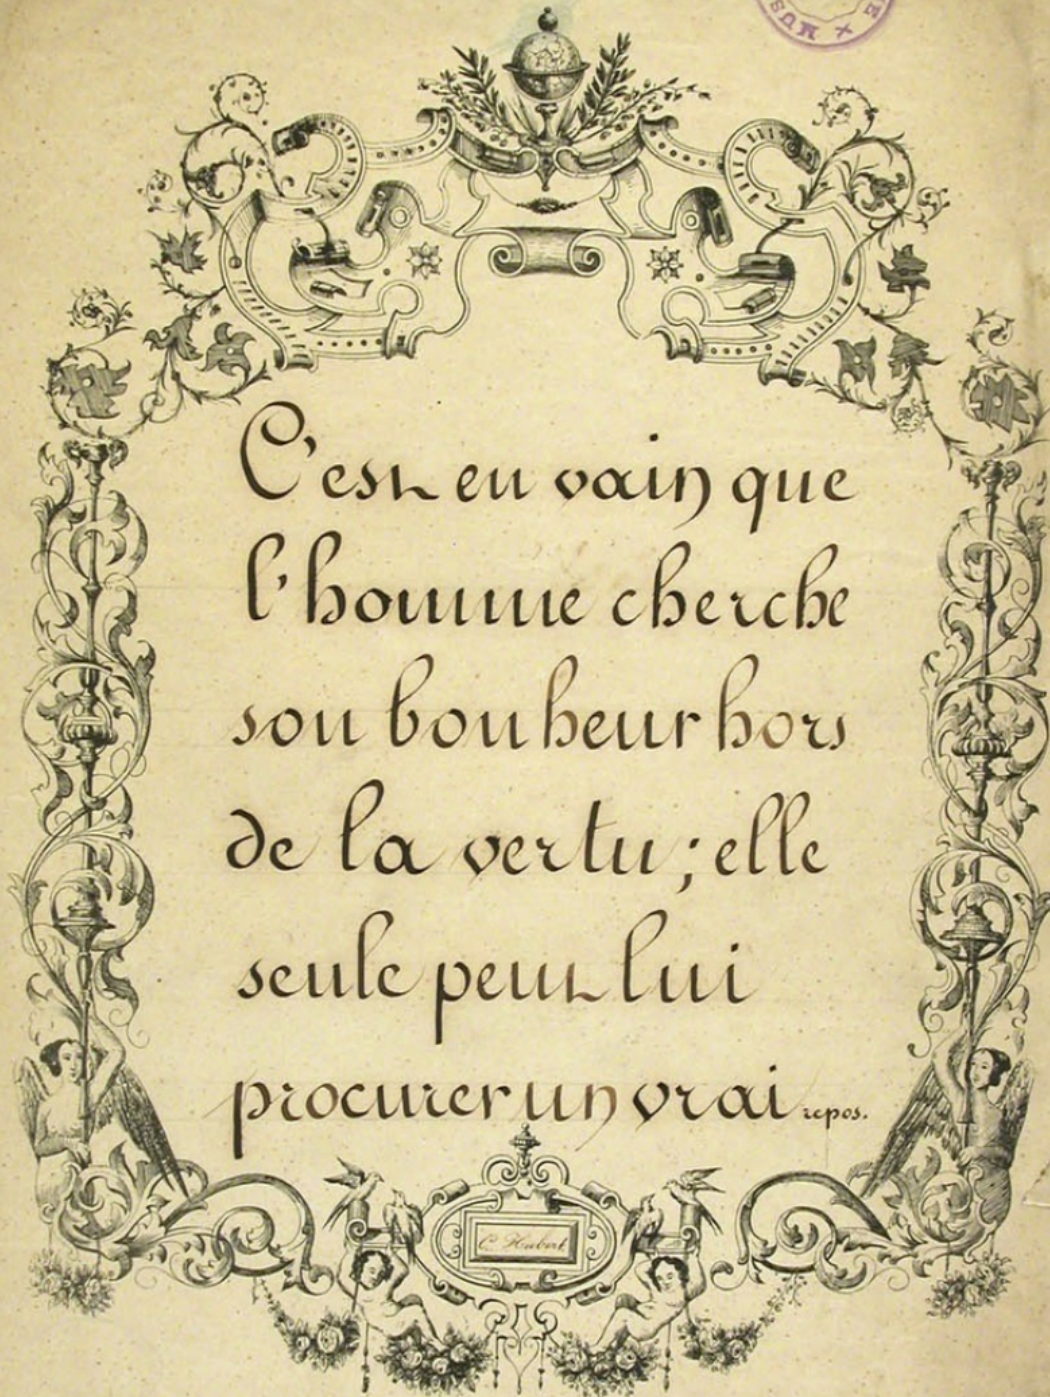 C'est en vain que
l'homme cherche
son bonheur hors
de la vertu ; elle
seule peut lui
procurer un vrai repos.
C. Hubert